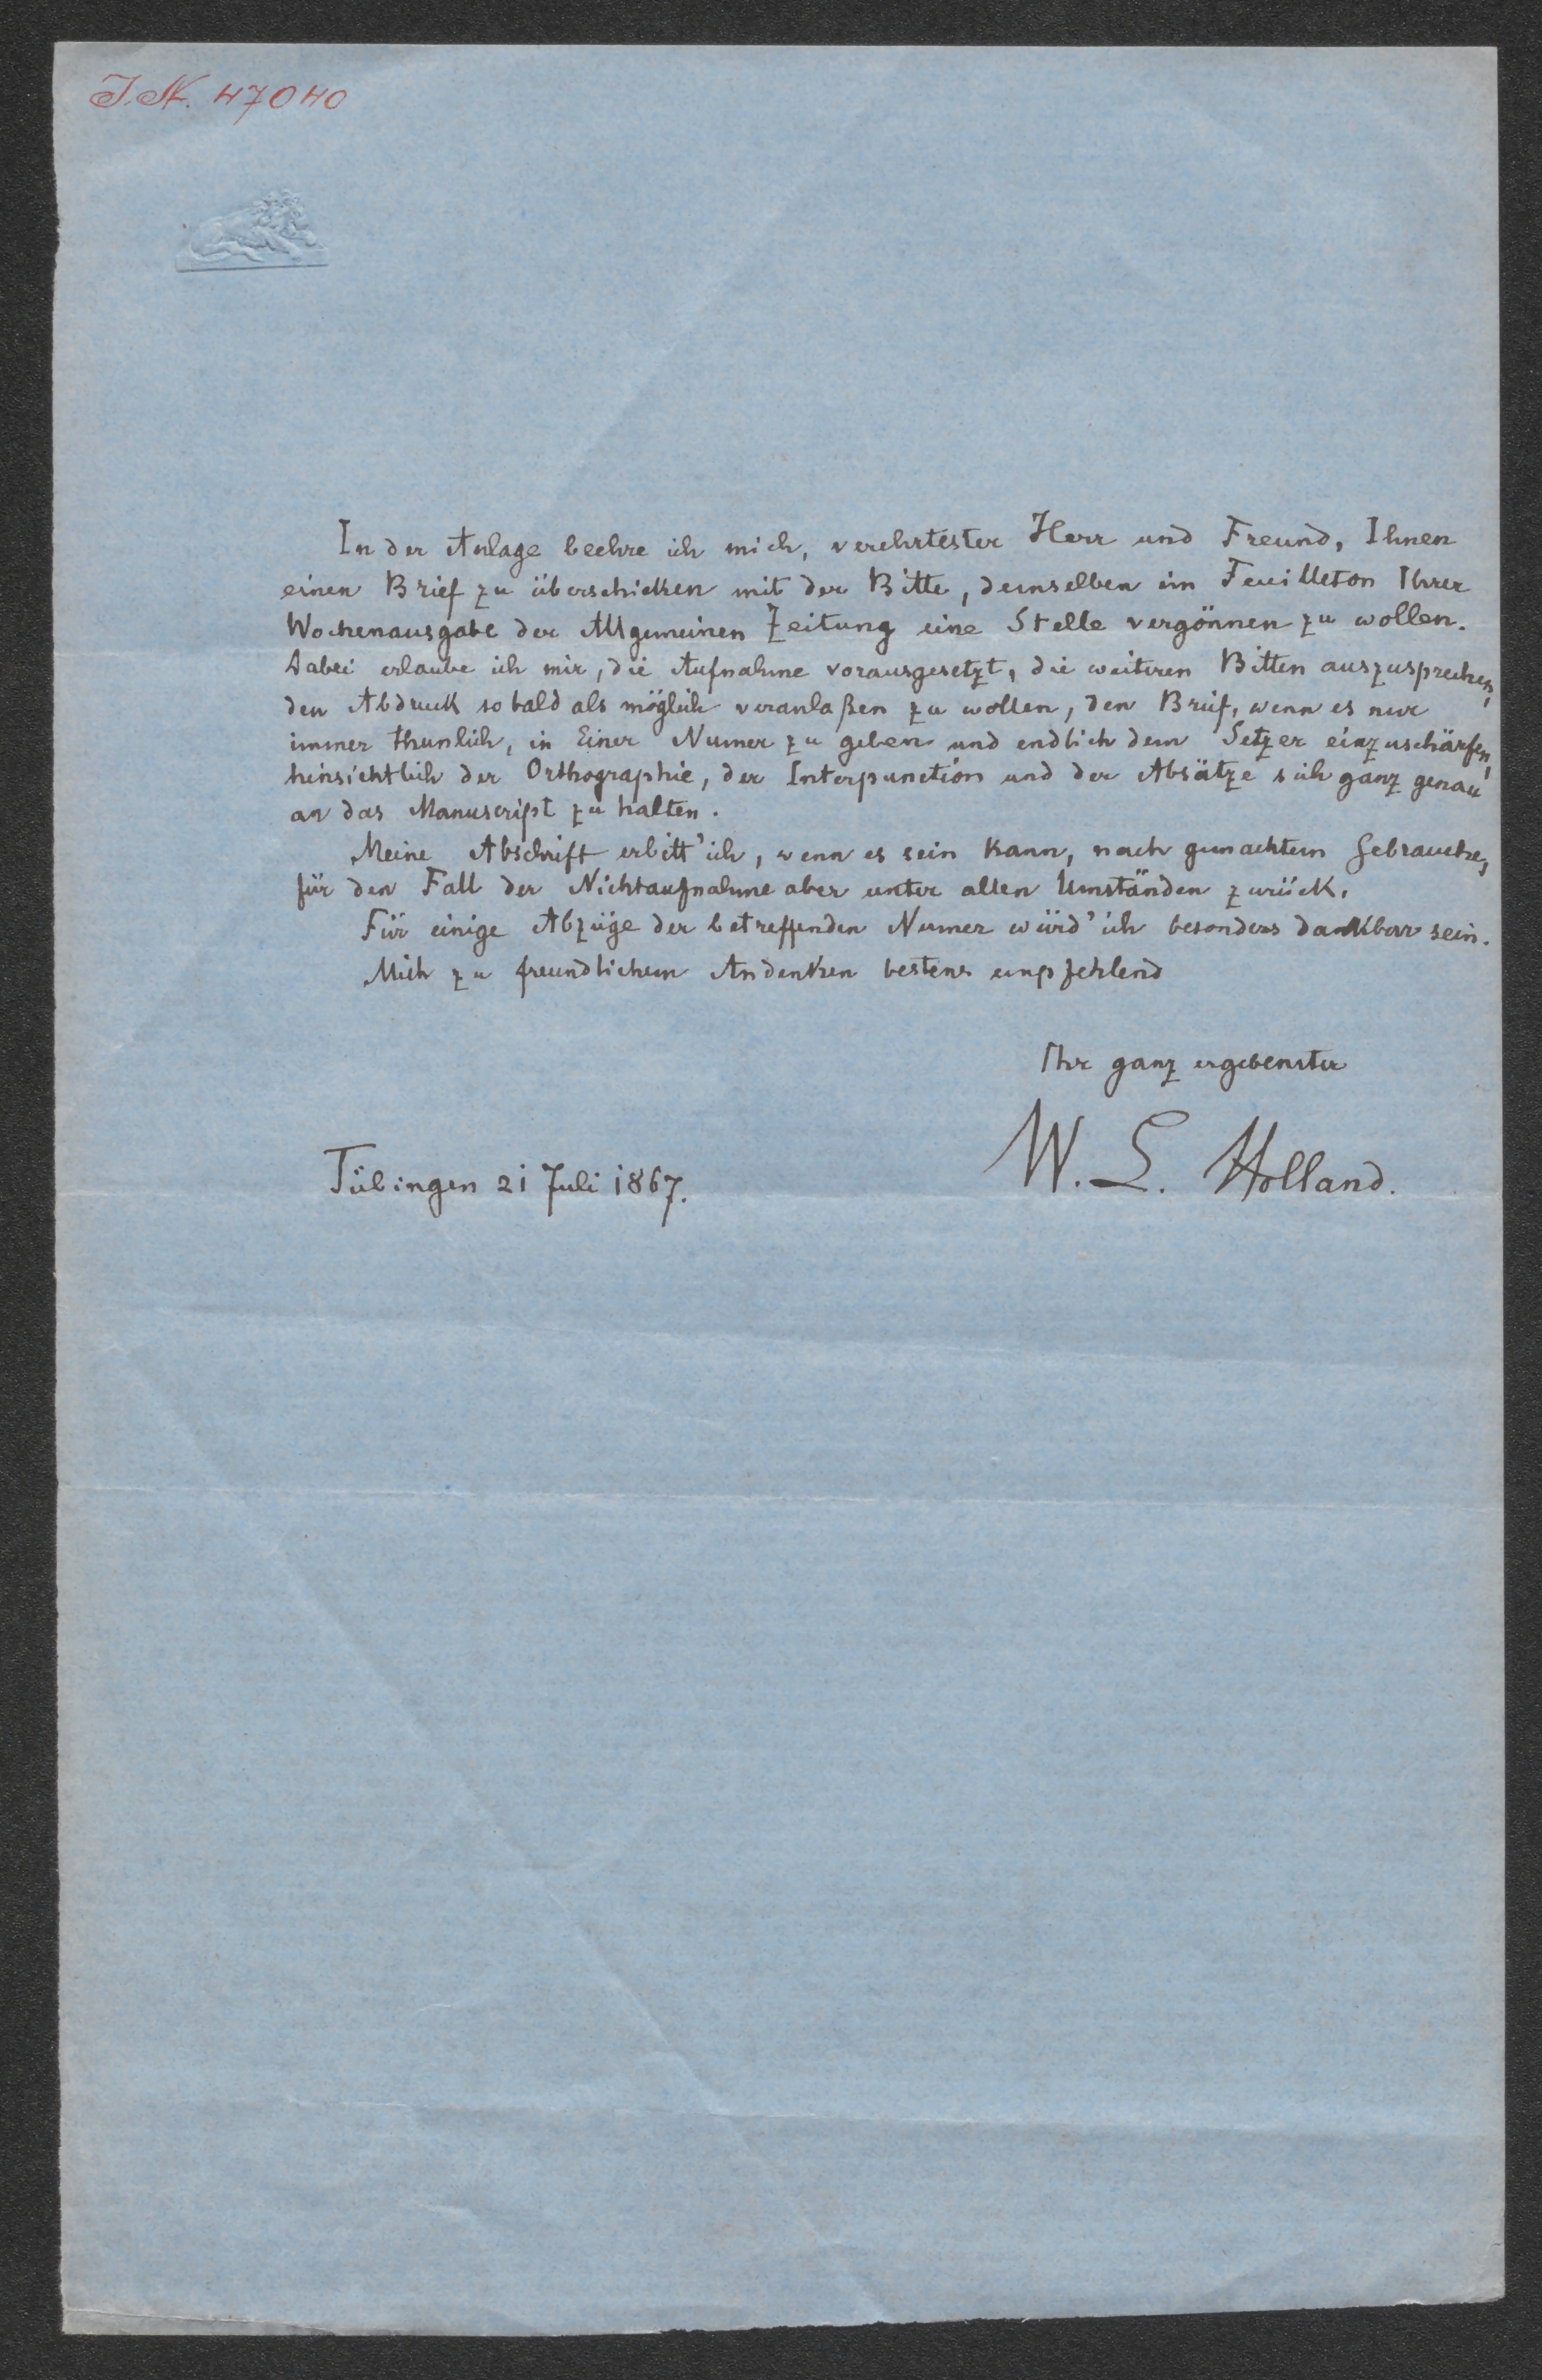 I. N. 47040
In der Anlage beehre ich mich, verehrtester Herr und Freund, Ihnen
einen Brief zu überschicken mit der Bitte, demselben im Feuilleton Ihrer
Wochenausgabe der Allgemeinen Zeitung eine Stelle vergönnen zu wollen.
Dabei erlaube ich mir, die Aufnahme vorausgesetzt, die weiteren Bitten auszusprechen,
den Abdruck sobald als möglich veranlaßen zu wollen, den Brief, wenn es nur
immer thunlich, in Einer Numer zu geben und endlich dem Setzer einzuschärfen,
hinsichtlich der Orthographie, der Interpunction und der Absätze sich ganz genau
an das Manuscript zu halten.
Meine Abschrift erbitt' ich, wenn es sein kann, nach gemachtem Gebrauche,
für den Fall der Nichtaufnahme aber unter allen Umständen zurück.
Für einige Abzüge der betreffenden Numer würd' ich besonders dankbar sein.
Mich zu freundlichem Andenken bestens empfehlend
Ihr ganz ergebenster
W. L. Holland.
Tübingen 21 Juli 1867.